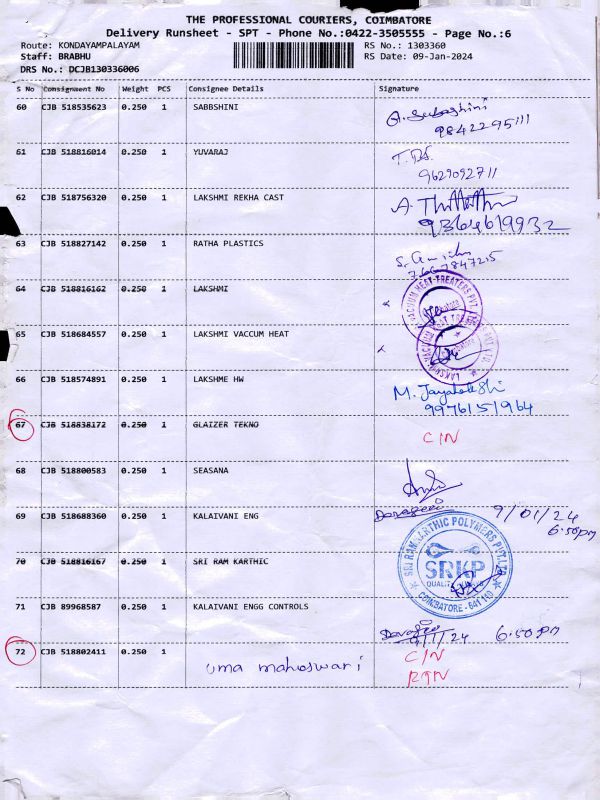 THE PROFESSIONAL COURIERS, COIMBATORE
Delivery Runsheet - SPT - Phone No.:0422-3505555 - Page No.:6
Route: KONDAYAMPALAYAM RS No.: 1303360
Staff: BRABHU RS Date: 09-Jan-2024
DRS No.: DCJB130336006
S No Consignment No Weight PCS Consignee Details Signature
60 CJB 518535623 0.250 1 SABBSHINI
9842295111
61 CJB 518816014 0.250 1 YUVARAJ
9629092711
62 CJB 518756320 0.250 1 LAKSHMI REKHA CAST
9364619932
63 CJB 518827142 0.250 1 RATHA PLASTICS
7667847215
64 CJB 518816162 0.250 1 LAKSHMI
65 CJB 518684557 0.250 1 LAKSHMI VACCUM HEAT
66 CJB 518574891 0.250 1 LAKSHME HW
9976151964
67 CJB 518838172 0.250 1 GLAIZER TEKNO
C/N
68 CJB 518800583 0.250 1 SEASANA
69 CJB 518688360 0.250 1 KALAIVANI ENG
9/01/24
6.50pm
70 CJB 518816167 0.250 1 SRI RAM KARTHIC
SRI RAM KARTHIC POLYMERS PVT.LTD
SRKP
COIMBATORE - 641 110
71 CJB 89968587 0.250 1 KALAIVANI ENGG CONTROLS
9/1/24 6.50pm
72 CJB 518802411 0.250 1 uma maheswari
C/N
RTN